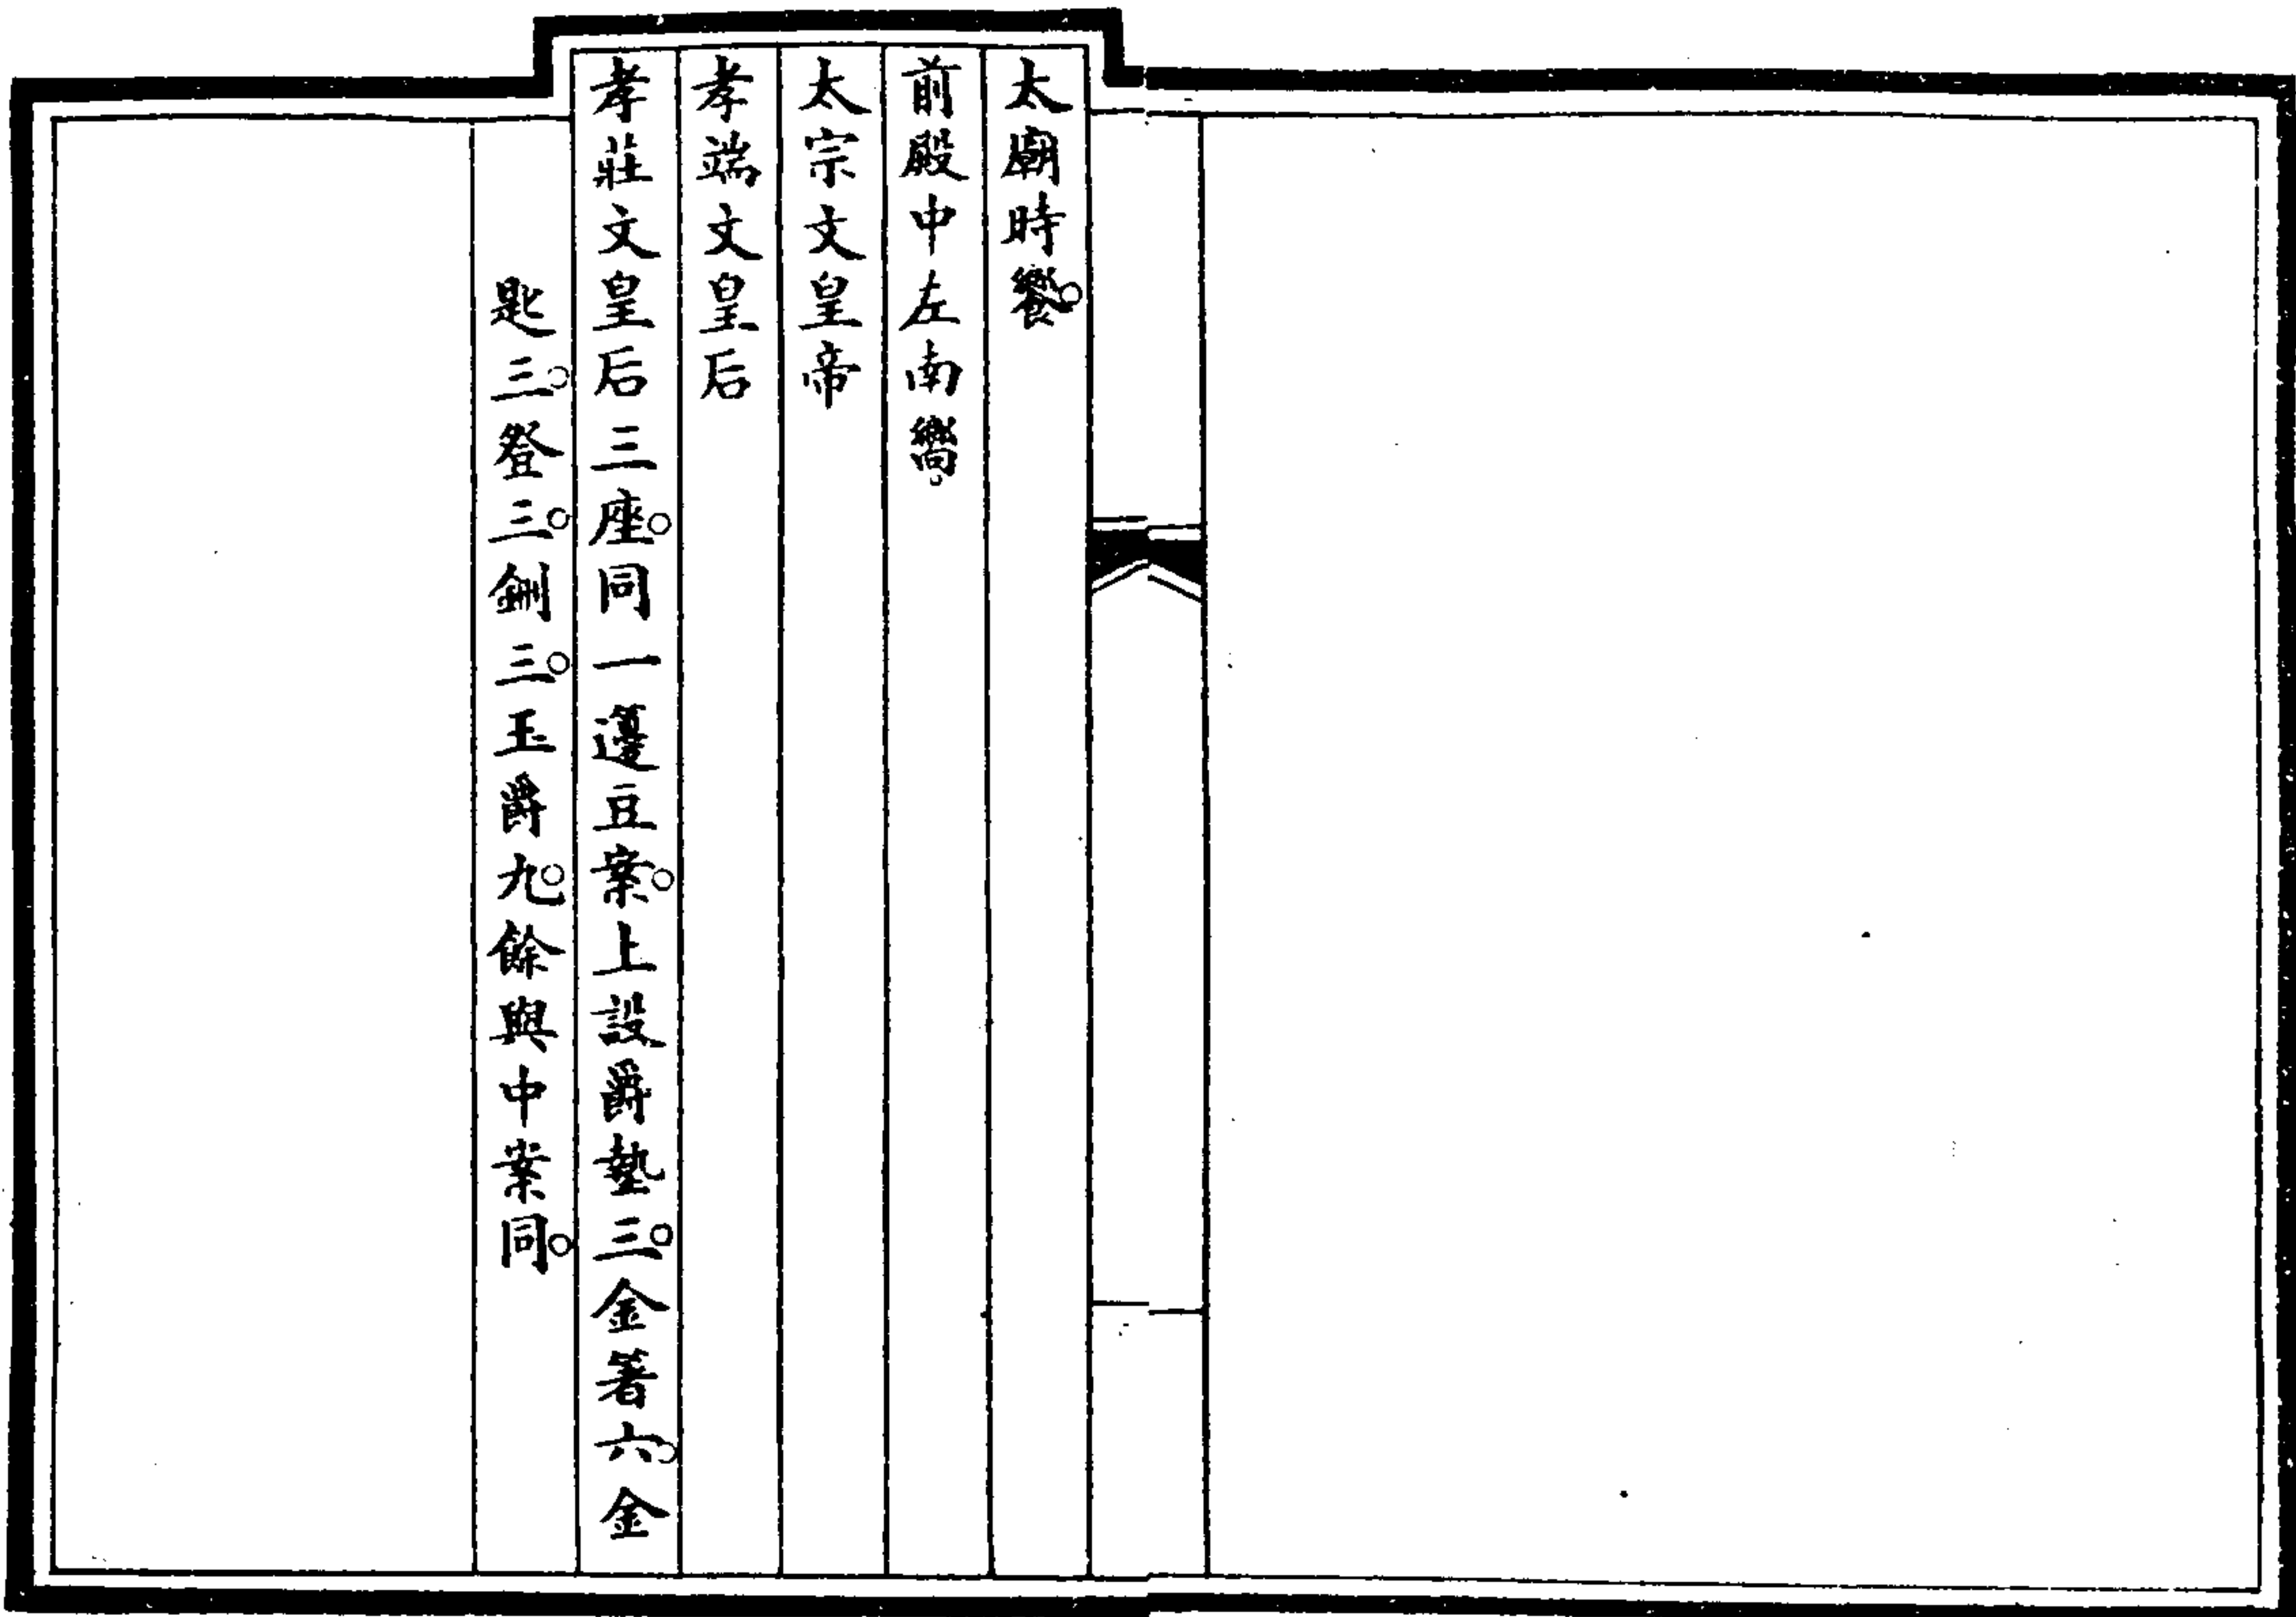 太廟時饗。
前殿中左南嚮。
太宗文皇帝
孝端文皇后
孝莊文皇后三座。同一籩豆案。上設爵墊三。金箸六。金
匙三。登三。鉶三。玉爵九。餘與中案同。